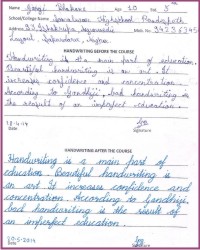 Name Age 10 Std. 5th
School/College Name
HANDWRITING BEFORE THE COURSE
Handwriting is the main part of education.
Beautiful handwriting is an art. It
Increases confidence and concentration.
According to Gandhiji, bad handwriting is
the result of an imperfect education.
18-4-14
Date Signature
HANDWRITING AFTER THE COURSE
Handwriting is a main part of
education. Beautiful handwriting is
an art. It increases confidence and
concentration. According to Gandhiji,
bad handwriting is the result of
an imperfect education.
20-5-2014
Date Signature